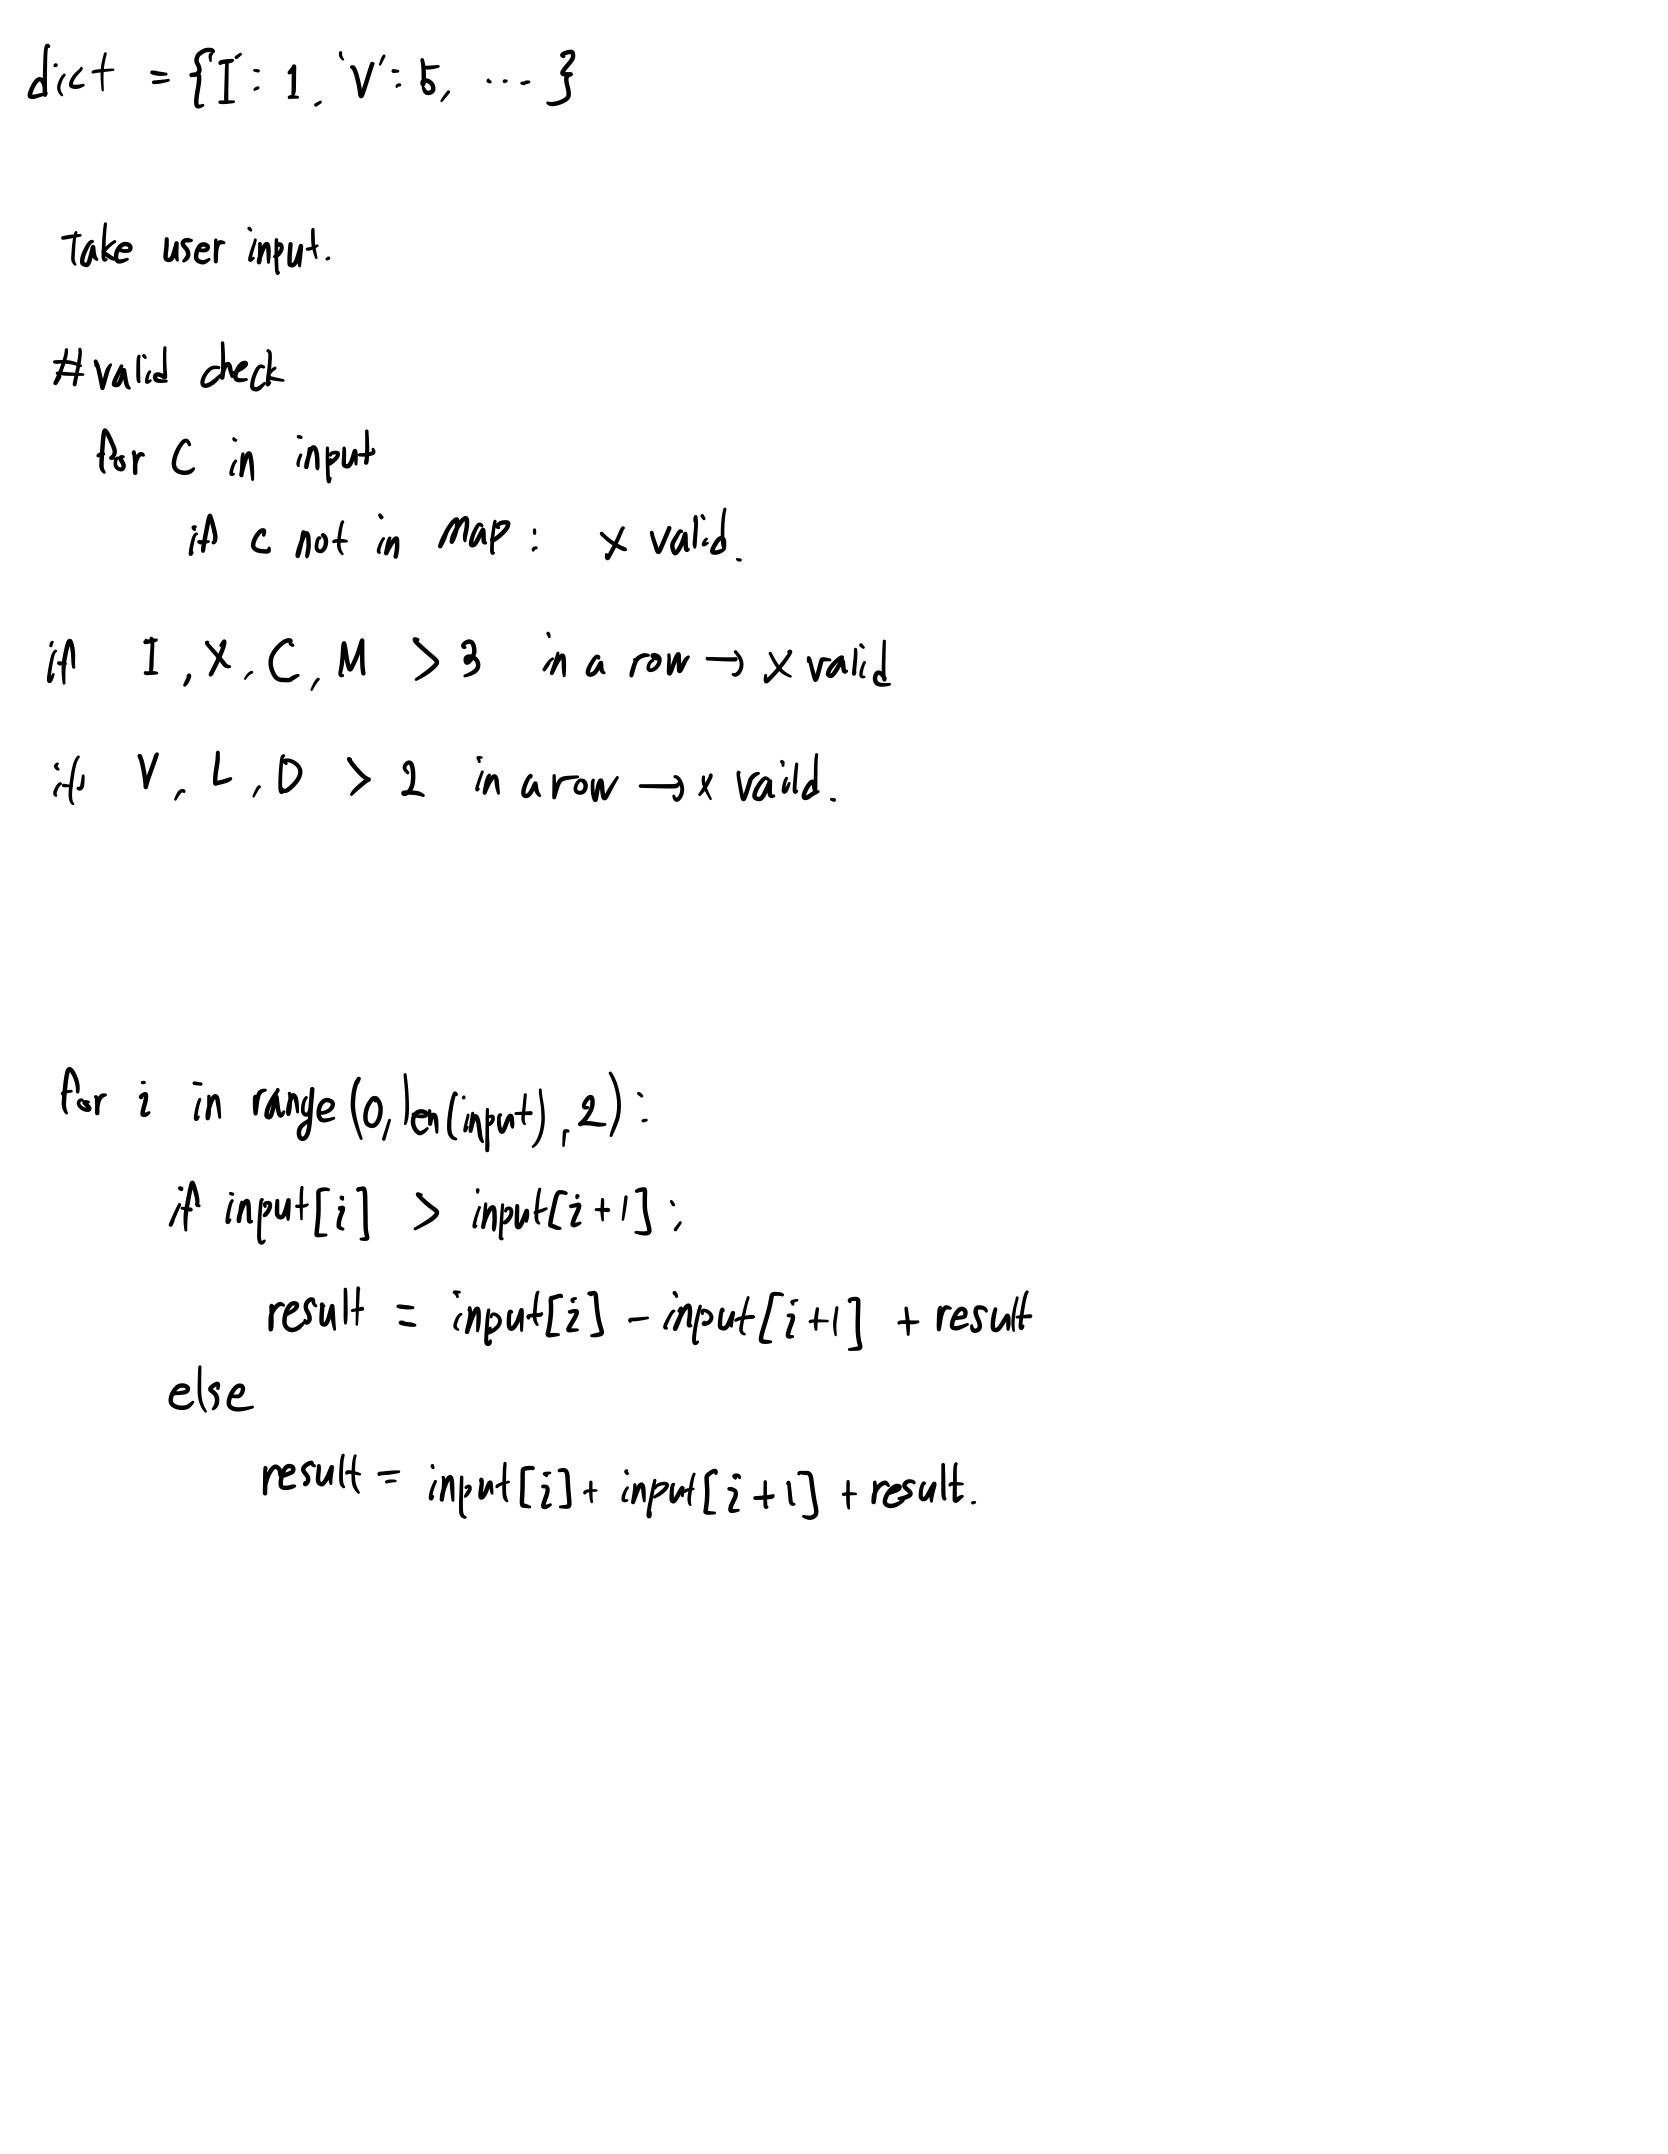 dict = {'I': 1, 'V': 5, ... }
Take user input.
#valid check
for c in input
if c not in map : x valid.
if I, X, C, M > 3 in a row → x valid
if V, L, D > 2 in a row → x vaild.
for i in range(0, len(input), 2):
if input[i] > input[i+1]:
result = input[i] - input[i+1] + result
else
result = input[i] + input[i+1] + result.